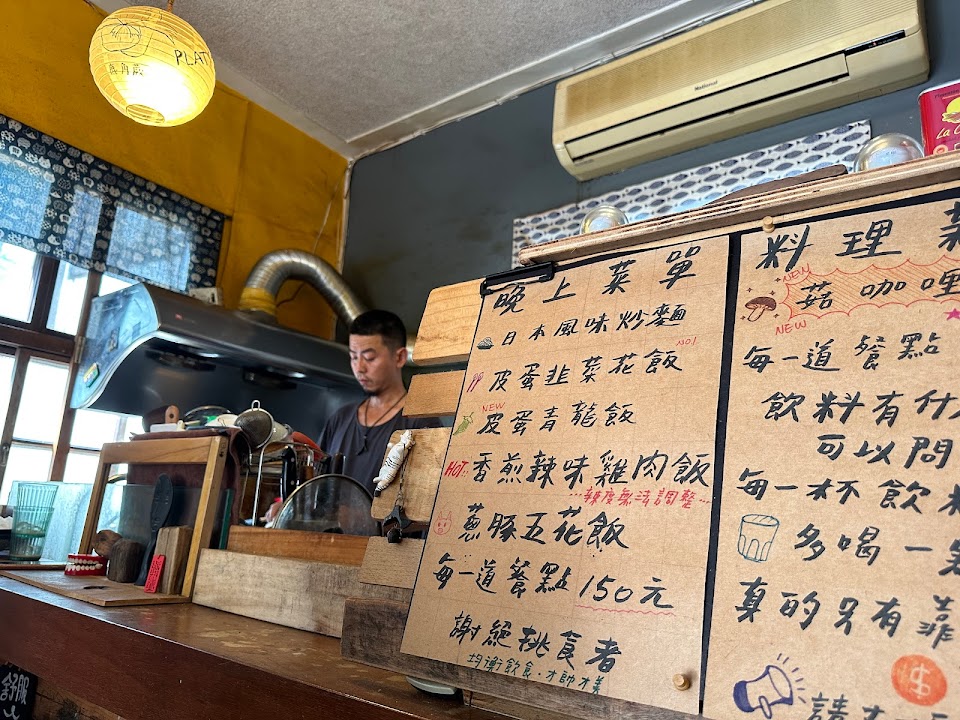 PLAT
National
La C
晚上菜單
日本風味炒麵
NO.1
皮蛋韭菜花飯
NEW
皮蛋青龍飯
HOT
香煎辣味雞肉飯
…辣度無法調整…
蔥豚五花飯
每一道餐點150元
謝絕挑食者
均衡飲食·才帥才美
料理菜
NEW
菇咖哩
NEW
每一道餐點
飲料有什
可以問
每一杯飲料
多喝一點
真的只有靠
請
舒服